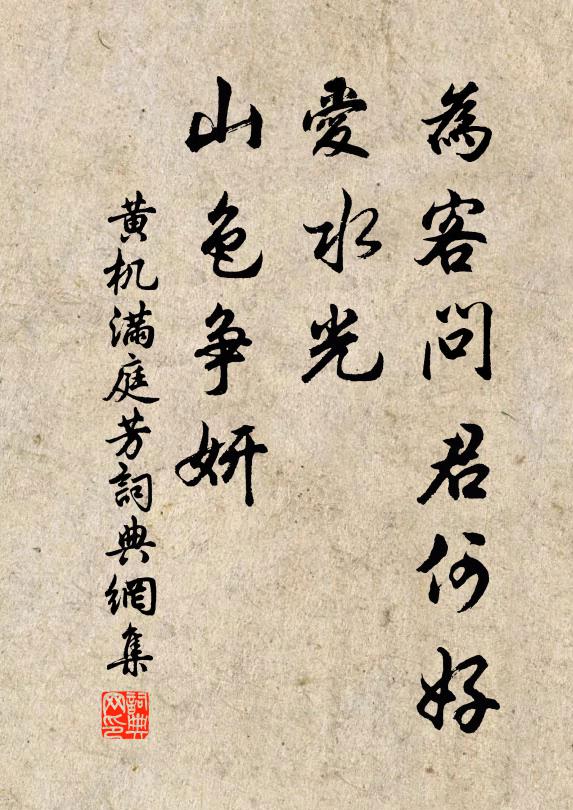 為客問君何好
愛水光
山色争妍
黄机滿庭芳詞典網集
詞典
网印